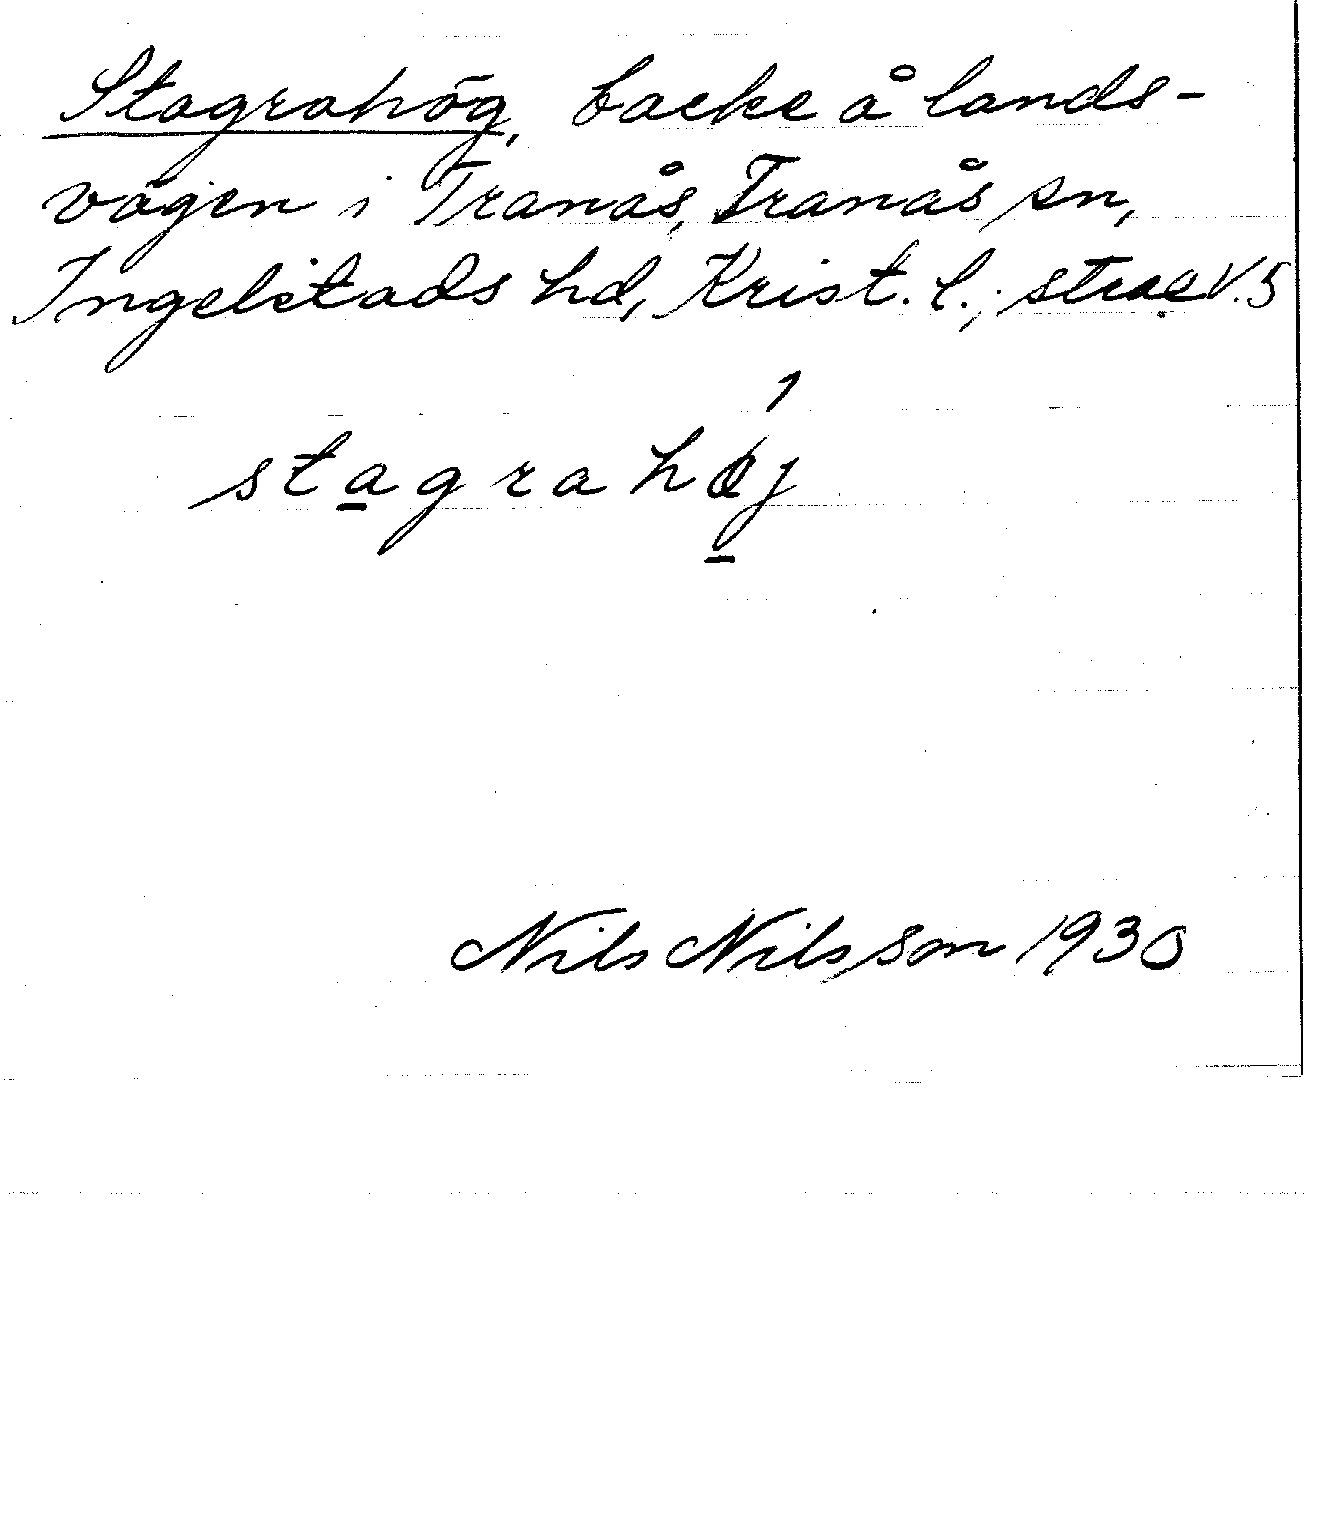 Stagrahög, backe å lands-
vägen i Tranås, Tranås sn,
Ingelstads hd, Krist. l.; V.5
stagrahøj
Nils Nilsson 1930